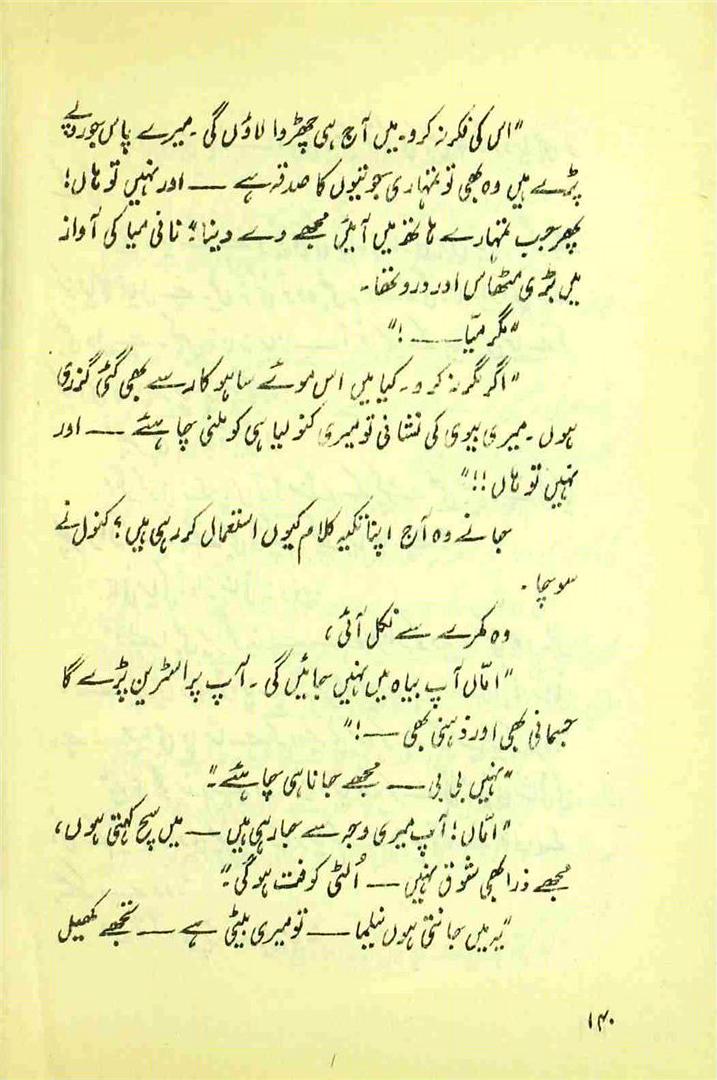 "اس کی فکر نہ کرو۔ میں آج ہی چھڑوا لاؤں گی۔ میرے پاس جو روپے
پڑے ہیں وہ بھی تو تمہاری جوتیوں کا صدقہ ہے — اور نہیں تو ہاں!
پھر جب تمہارے ہاتھ میں آئیں مجھے دے دینا" نانی میا کی آواز
میں بڑی مٹھاس اور درد تھا۔
"مگر میّا —— !"
"اگر مگر نہ کرو۔ کیا میں اس موئے ساہوکار سے بھی گئی گزری
ہوں۔ میری بیوی کی نشانی تو میری کنولیا ہی کو ملنی چاہئے — اور
نہیں تو ہاں!!"
جانے وہ آج اپنا تکیہ کلام کیوں استعمال کر رہی ہیں؟ کنول نے
سوچا۔
وہ کمرے سے نکل آئی،
"امّاں آپ بیاہ میں نہیں جائیں گی۔ آپ پر اسٹرین پڑے گا
جسمانی بھی اور ذہنی بھی —!"
"نہیں بی بی — مجھے جانا ہی چاہئے۔"
"امّاں! آپ میری وجہ سے جا رہی ہیں — میں سچ کہتی ہوں،
مجھے ذرا بھی شوق نہیں — اُلٹی کوفت ہوگی۔"
"یہ میں جانتی ہوں نیلیما — تو میری بیٹی ہے — تجھے کھیل
۱۴۰